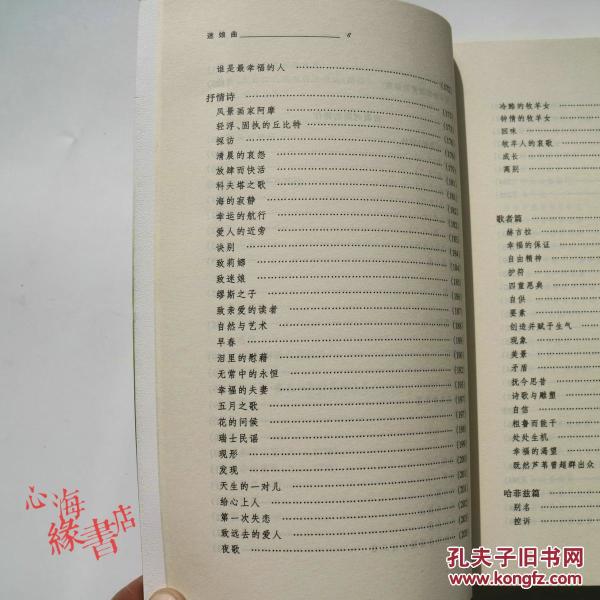 迷娘曲 6
谁是最幸福的人
抒情诗
风景画家阿摩
轻浮、固执的丘比特
探访
清晨的哀怨
放肆而快活
科夫塔之歌
海的寂静
幸运的航行
爱人的近旁
诀别
致莉娜
致迷娘
缪斯之子
致亲爱的读者
自然与艺术
早春
泪里的慰藉
无常中的永恒
幸福的夫妻
五月之歌
花的问候
瑞士民谣
现形
发现
天生的一对儿
给心上人
第一次失恋
致远去的爱人
夜歌
冷酷的牧羊女
钟情的牧羊女
回味
牧羊人的哀歌
成长
离别
歌者篇
赫吉拉
幸福的保证
自由精神
护符
四重恩典
自供
要素
创造并赋予生气
现象
美景
矛盾
抚今思昔
诗歌与雕塑
自信
粗鲁而能干
处处生机
幸福的渴望
既然芦苇曾超群出众
哈菲兹篇
别名
控诉
心海
缘書店
孔夫子旧书网
www.kongfz.com